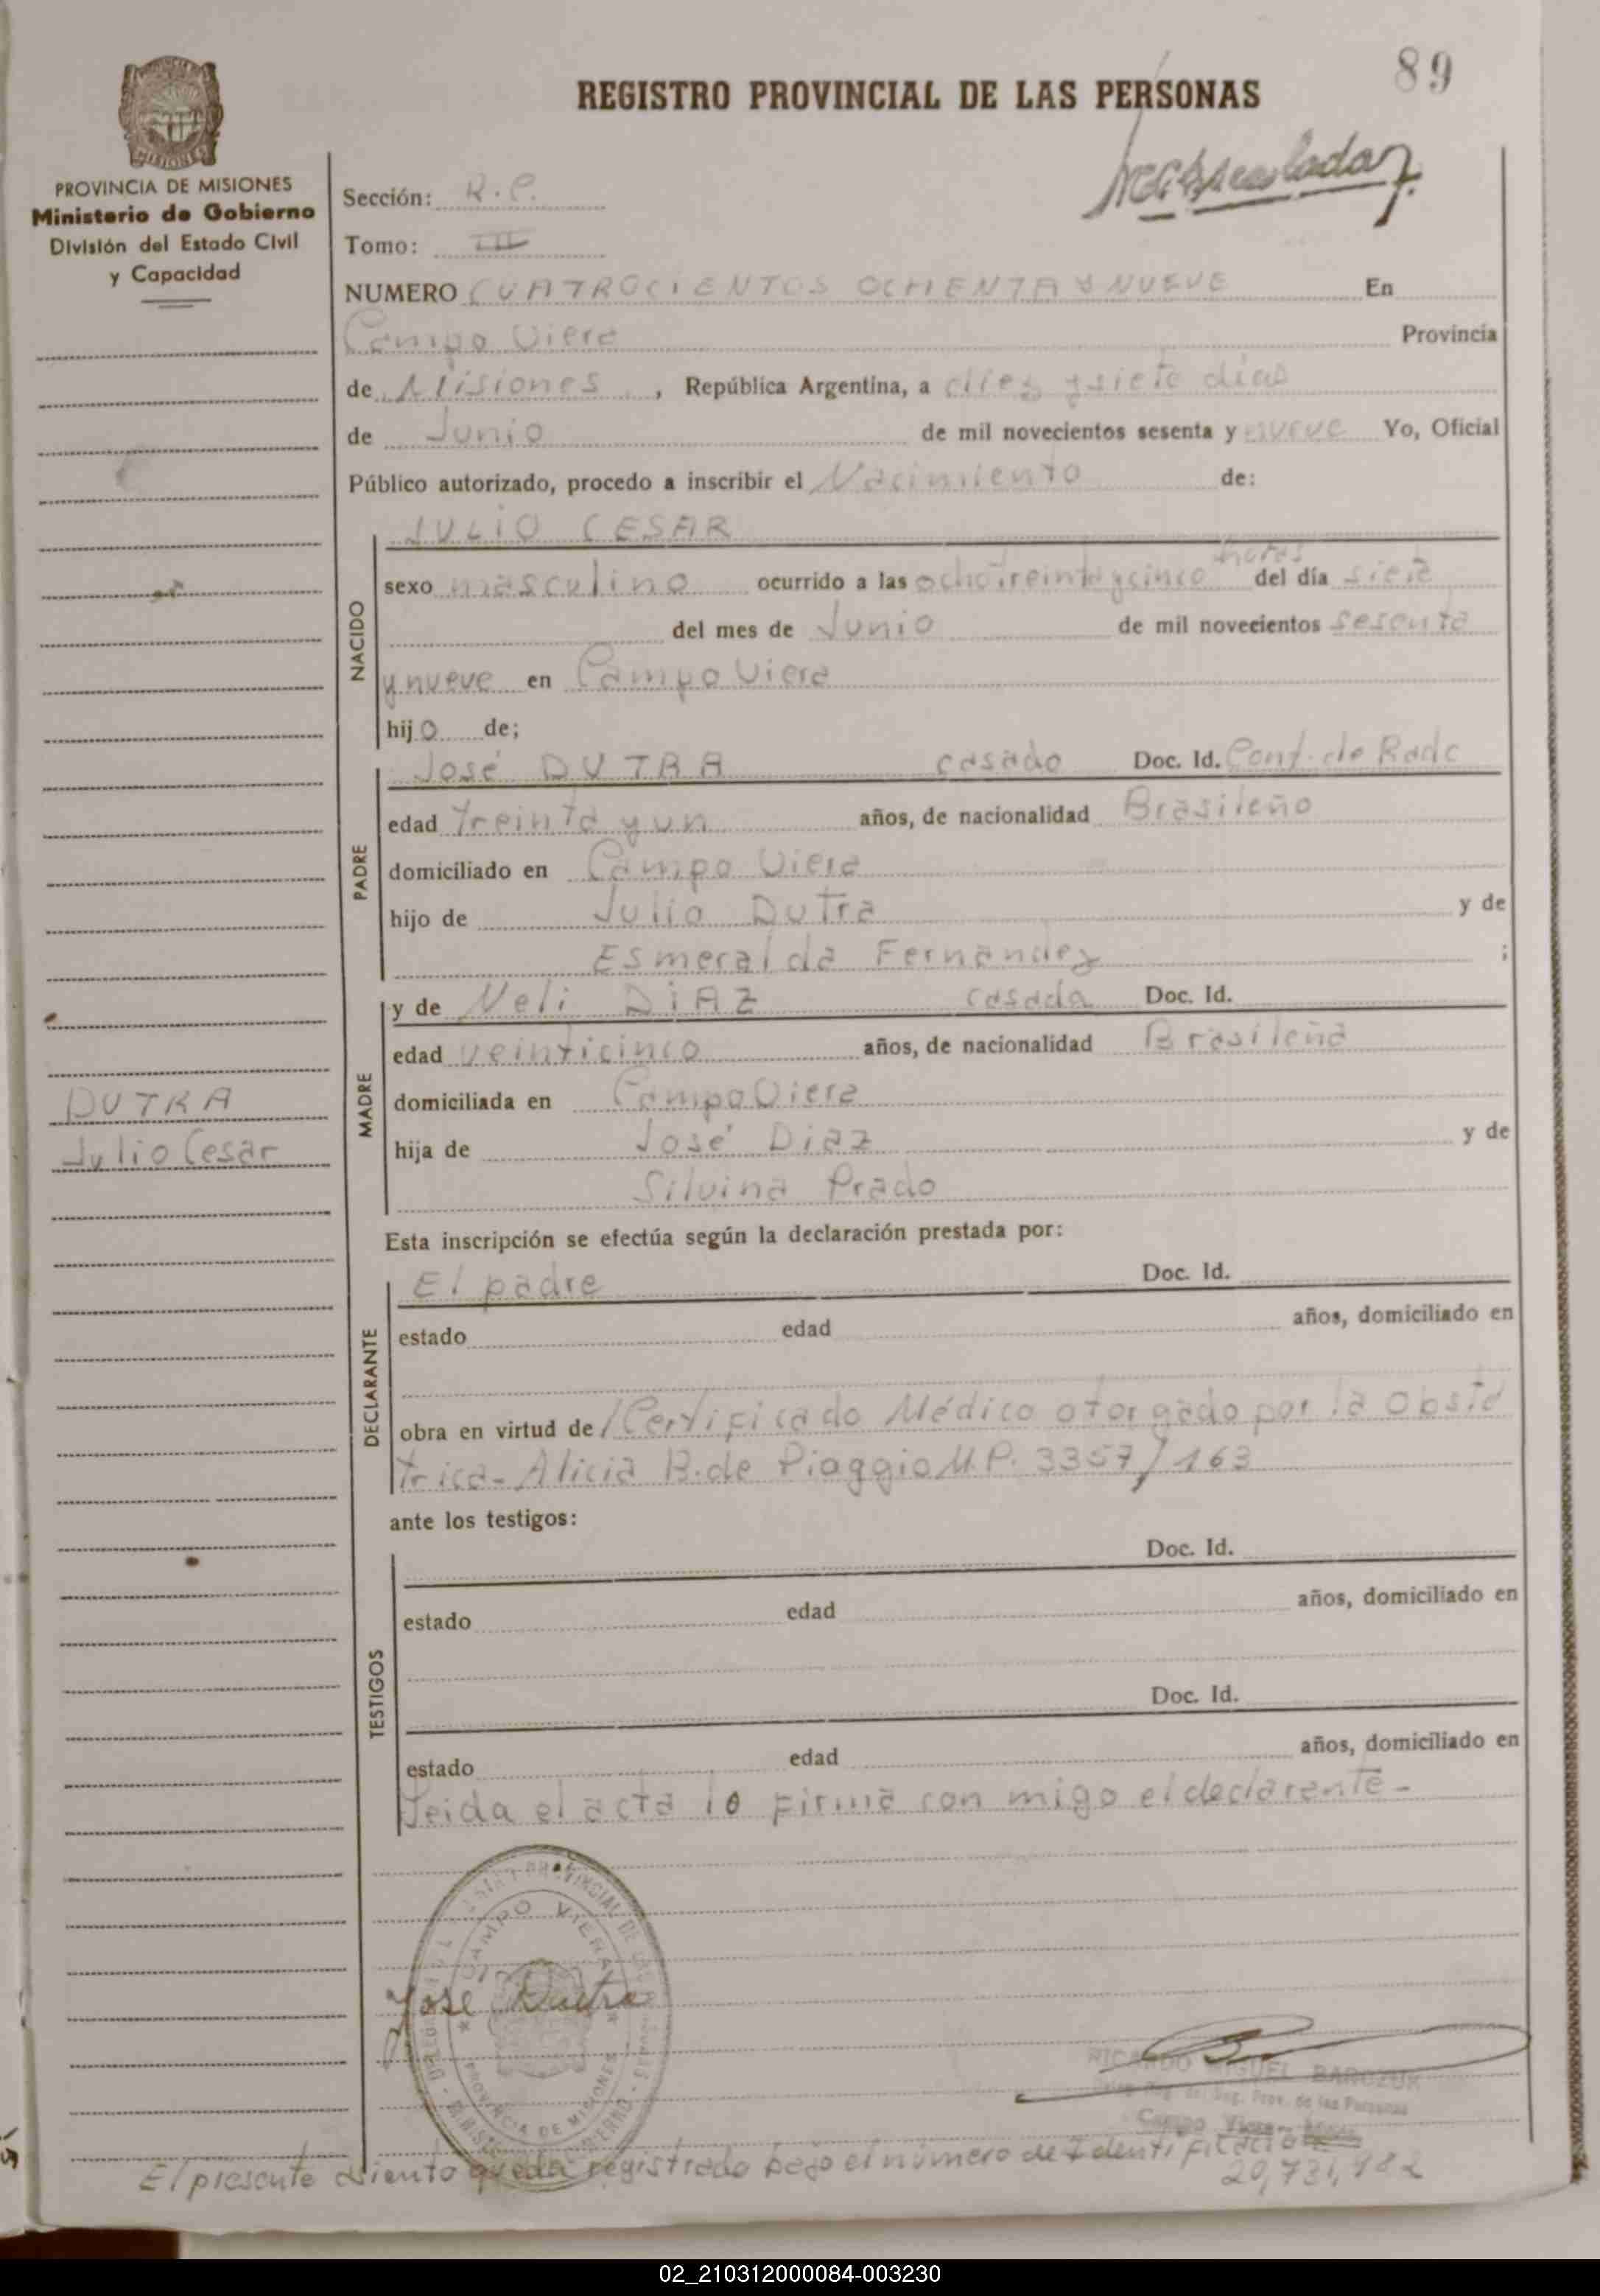 89
REGISTRO PROVINCIAL DE LAS PERSONAS
PROVINCIA DE MISIONES
Ministerio de Gobierno
División del Estado Civil
y Capacidad
Sección: R.C.
Tomo: III
NUMERO CUATROCIENTOS OCHENTA Y NUEVE En
Campo Viera Provincia
de Misiones, República Argentina, a diez y siete días
de Junio de mil novecientos sesenta y nueve Yo, Oficial
Público autorizado, procedo a inscribir el Nacimiento de:
NACIDO
JULIO CESAR
sexo masculino ocurrido a las ocho treinta y cinco horas del día siete
del mes de Junio de mil novecientos sesenta
y nueve en Campo Viera
hijo de;
PADRE
José DUTRA casado Doc. Id. Cont. de Radc
edad treinta y un años, de nacionalidad Brasileño
domiciliado en Campo Viera
hijo de Julio Dutra y de
Esmeralda Fernandez ;
MADRE
y de Neli DiAZ casada Doc. Id.
edad veinticinco años, de nacionalidad Brasileña
domiciliada en Campo Viera
hija de José Diaz y de
Silvina Prado
DUTRA
Julio Cesar
Esta inscripción se efectúa según la declaración prestada por:
DECLARANTE
El padre Doc. Id.
estado edad años, domiciliado en
obra en virtud de Certificado Médico otorgado por la Obsté
trica- Alicia B. de Piaggio M.P. 3357/163
ante los testigos:
TESTIGOS
Doc. Id.
estado edad años, domiciliado en
Doc. Id.
estado edad años, domiciliado en
Leida el acta lo firma con migo el declarente-
CAMPO VIERA
PROVINCIA DE MISIONES
José Dutra
RICARDO MIGUEL BARCZUK
Reg. Prov. de las Personas
Campo Viera
El presente asiento queda registrado bajo el número de Identificación
20,731,982
02_210312000084-003230